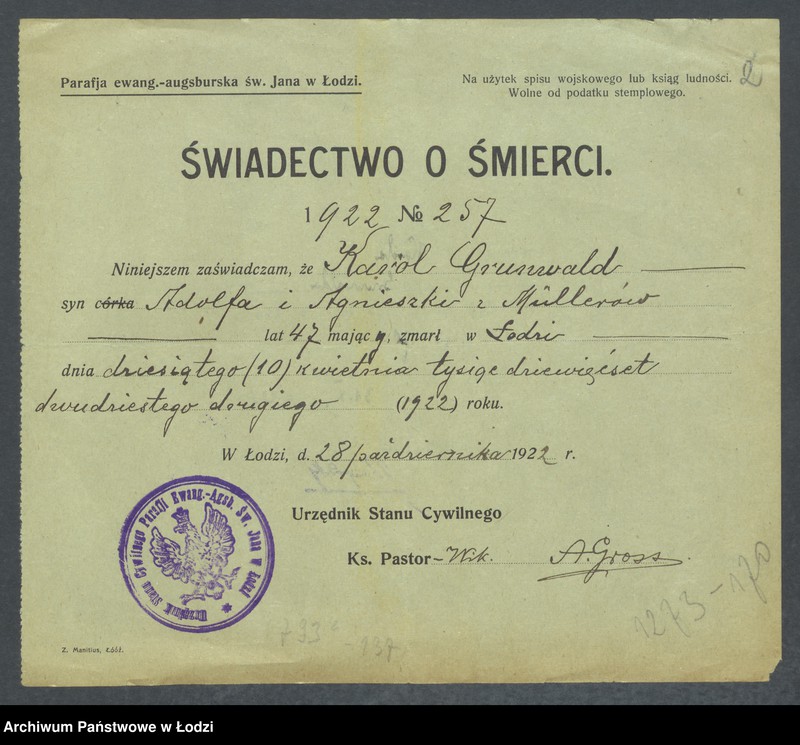 Parafja ewang.-augsburska św. Jana w Łodzi.
Na użytek spisu wojskowego lub ksiąg ludności.
Wolne od podatku stemplowego.
2
ŚWIADECTWO O ŚMIERCI.
1922 № 257
Niniejszem zaświadczam, że Karol Grunwald
syn córka Adolfa i Agnieszki z Müllerów
lat 47 mający, zmarł w Łodzi
dnia dziesiątego (10) kwietnia tysiąc dziewięćset
dwudziestego drugiego (1922) roku.
W Łodzi, d. 28 października 1922 r.
Urzędnik Stanu Cywilnego
Ks. Pastor-Wik. A. Gross
Urzędnik Stanu Cywilnego Parafji Ewang.-Agsb. Św. Jana w Łodzi
1273-170
733
137
Z. Manitius, Łódź.
Archiwum Państwowe w Łodzi